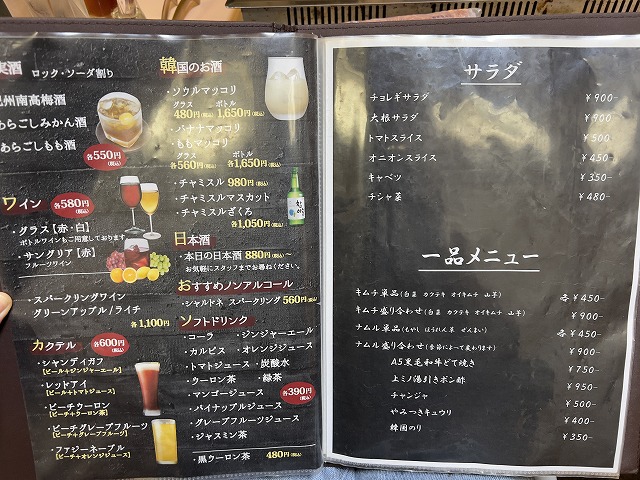 実酒 ロック・ソーダ割り
州南高梅酒
あらごしみかん酒
あらごしもも酒
各550円(税込)
ワイン 各580円(税込)
・グラス【赤・白】
ボトルワインもご用意しております
・サングリア【赤】
フルーツワイン
・スパークリングワイン
グリーンアップル/ライチ
各1,100円
カクテル 各600円(税込)
・シャンディガフ
【ビール+ジンジャーエール】
・レッドアイ
【ビール+トマトジュース】
・ピーチウーロン
【ピーチ+ウーロン茶】
・ピーチグレープフルーツ
【ピーチ+グレープフルーツ】
・ファジーネーブル
【ピーチ+オレンジジュース】
韓国のお酒
・ソウルマッコリ
グラス ボトル
480円(税込) 1,650円(税込)
・バナナマッコリ
・ももマッコリ
グラス ボトル
各560円(税込) 各1,650円(税込)
・チャミスル 980円(税込)
・チャミスルマスカット
・チャミスルざくろ
各1,050円(税込)
日本酒
・本日の日本酒 880円〜(税込)
お気軽にスタッフまでお尋ねください。
おすすめノンアルコール
・シャルドネ スパークリング 560円(税込)
ソフトドリンク
・コーラ ・ジンジャーエール
・カルピス ・オレンジジュース
・トマトジュース ・炭酸水
・ウーロン茶 ・緑茶
・マンゴージュース
・パイナップルジュース
・グレープフルーツジュース
・ジャスミン茶
各390円(税込)
・黒ウーロン茶 480円(税込)
サラダ
チョレギサラダ ￥900-
大根サラダ ￥900-
トマトスライス ￥500-
オニオンスライス ￥450-
キャベツ ￥350-
チシャ菜 ￥480-
一品メニュー
キムチ単品(白菜 カクテキ オイキムチ 山芋) 各￥450-
キムチ盛り合わせ(白菜 カクテキ オイキムチ 山芋) ￥900-
ナムル単品(もやし ほうれん草 ぜんまい) 各￥450-
ナムル盛り合わせ(季節によって変わります) ￥900-
A5黒毛和牛どて焼き ￥750-
上ミノ湯引きポン酢 ￥950-
チャンジャ ￥500-
やみつきキュウリ ￥400-
韓国のり ￥350-